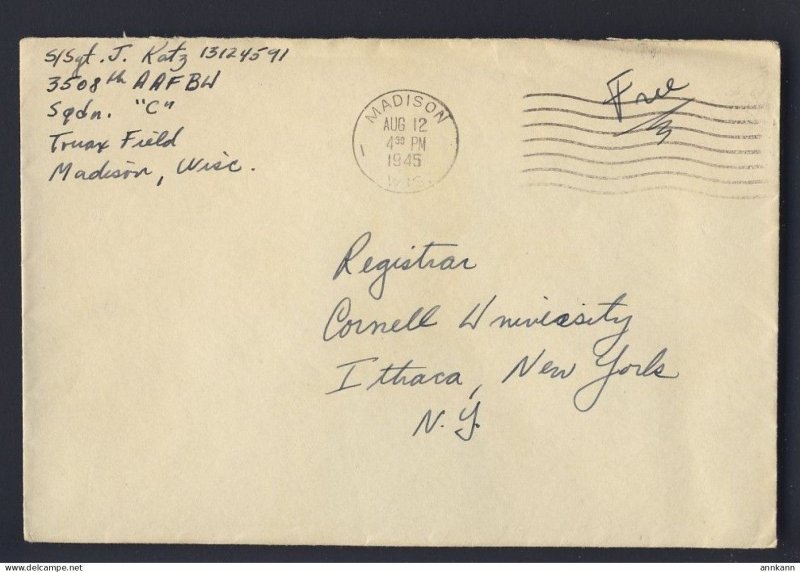 S/Sgt. J. Katz 13124591
3508th AAFBU
Sqdn. "C"
Truax Field
Madison, Wisc.
MADISON
AUG 12
4 30 PM
1945
WIS.
Free
Registrar
Cornell University
Ithaca, New York
N.Y.
delcampe.net
annkann